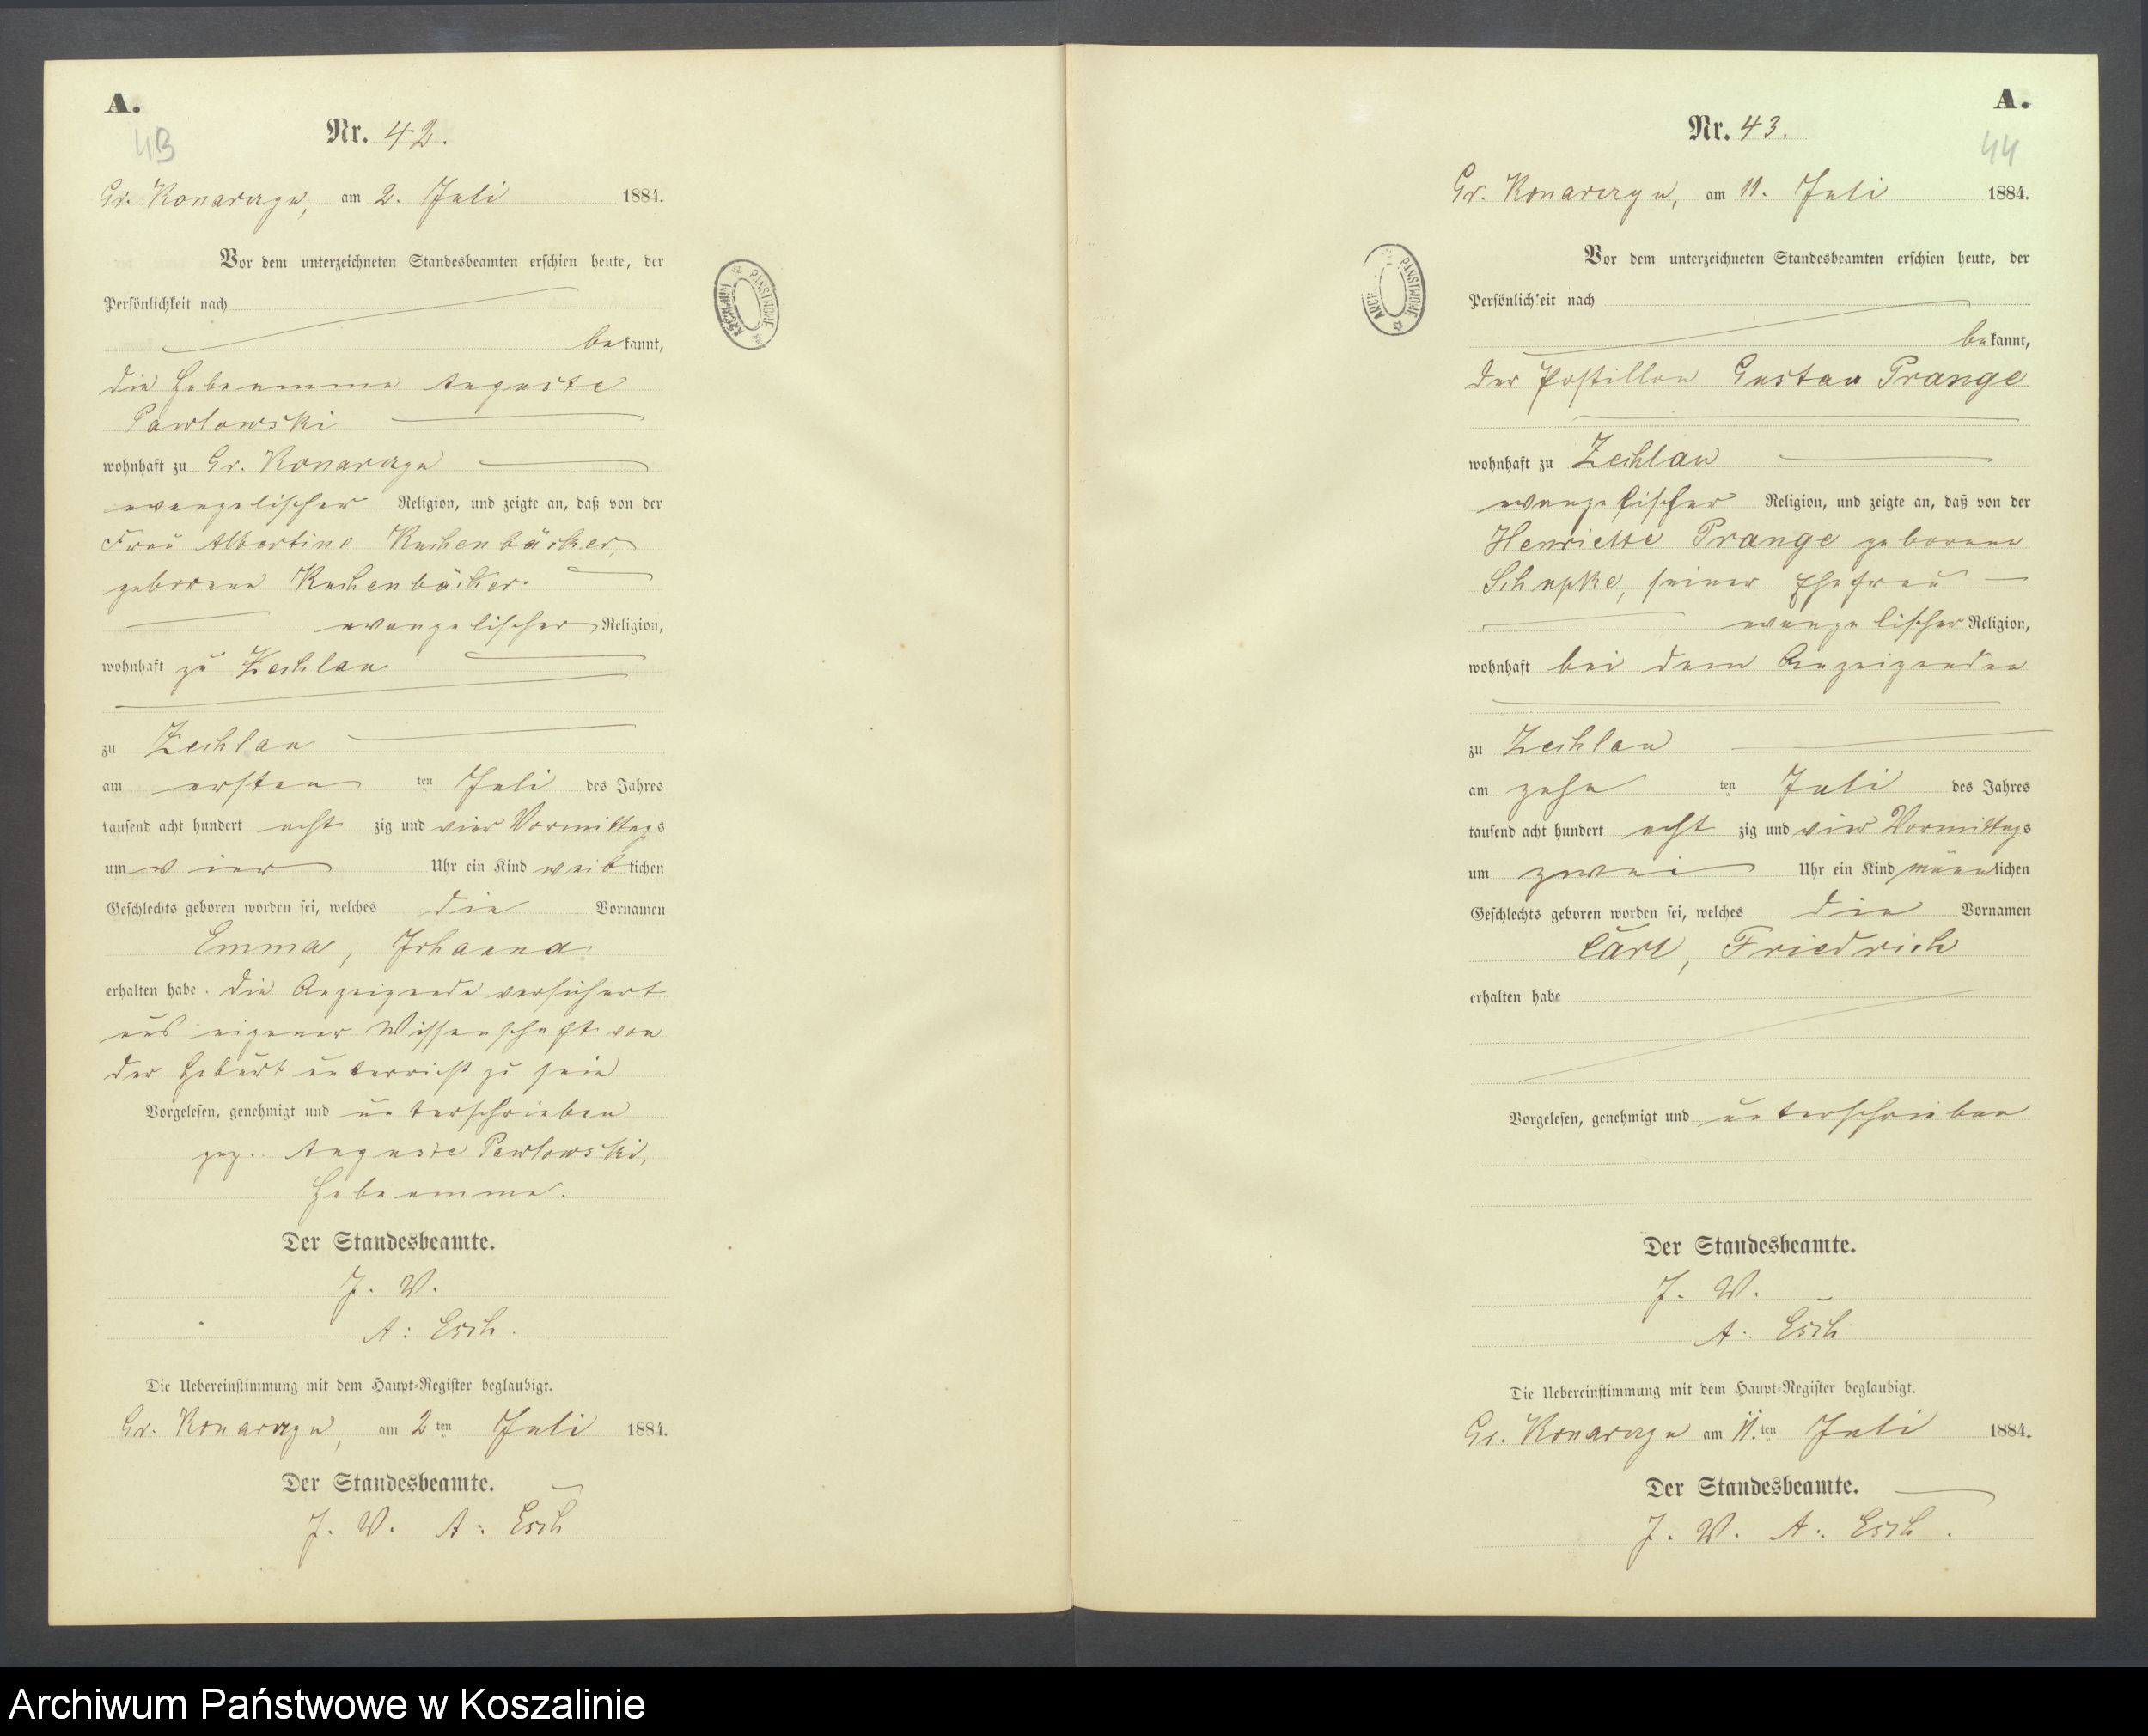 A.
43
Nr. 42.
Gr. Konarczyn, am 2. Juli 1884.
Vor dem unterzeichneten Standesbeamten erschien heute, der
Persönlichkeit nach
bekannt,
die Hebeamme Auguste
Pawlowski
wohnhaft zu Gr. Konarczyn
evangelischer Religion, und zeigte an, daß von der
Frau Albertine Kuchenbäcker,
geborene Kuchenbäcker
evangelischer Religion,
wohnhaft zu Zechlau
zu Zechlau
am ersten ten Juli des Jahres
tausend acht hundert acht zig und vier Vormittags
um vier Uhr ein Kind weiblichen
Geschlechts geboren worden sei, welches die Vornamen
Emma, Johanna
erhalten habe. Die Anzeigende versichert
aus eigener Wissenschaft von
der Geburt unterricht zu sein
Vorgelesen, genehmigt und unterschrieben
gez. Auguste Pawlowski,
Hebeamme.
Der Standesbeamte.
J. V.
A: Esch.
Die Uebereinstimmung mit dem Haupt-Register beglaubigt.
Gr. Konarczyn, am 2ten Juli 1884.
Der Standesbeamte.
J. V. A: Esch
ARCHIWUM PAŃSTWOWE
A.
44
Nr. 43.
Gr. Konarczyn, am 11. Juli 1884.
Vor dem unterzeichneten Standesbeamten erschien heute, der
Persönlichkeit nach
bekannt,
der Postillon Gustav Prange
wohnhaft zu Zechlau
evangelischer Religion, und zeigte an, daß von der
Henriette Prange geborene
seiner Ehefrau
evangelischer Religion,
wohnhaft bei dem Anzeigenden
zu Zechlau
am zehn ten Juli des Jahres
tausend acht hundert acht zig und vier Vormittags
um zwei Uhr ein Kind männlichen
Geschlechts geboren worden sei, welches die Vornamen
Carl, Friedrich
erhalten habe
Vorgelesen, genehmigt und unterschrieben
Der Standesbeamte.
J. V.
A: Esch
Die Uebereinstimmung mit dem Haupt-Register beglaubigt.
Gr. Konarczyn am 11.ten Juli 1884.
Der Standesbeamte.
J. V. A: Esch.
Archiwum Państwowe w Koszalinie